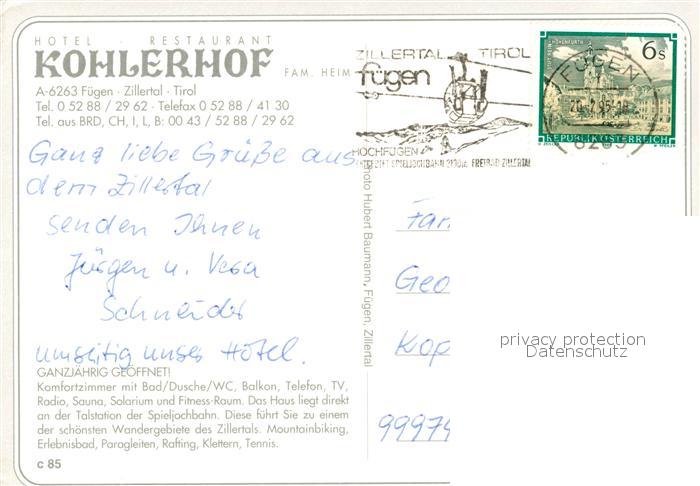 HOTEL · RESTAURANT
KOHLERHOF FAM. HEIM
A-6263 Fügen · Zillertal · Tirol
Tel. 0 52 88 / 29 62 · Telefax 0 52 88 / 41 30
Tel. aus BRD, CH, I, L, B: 00 43 / 52 88 / 29 62
ZILLERTAL TIROL
fügen
HOCHFÜGEN
SPIELJOCHBAHN FREIBAD ZILLERTAL
FÜGEN
6263
6 S
REPUBLIK ÖSTERREICH
Ganz liebe Grüße aus
dem Zillertal
senden Ihnen
Jürgen u. Vera
Schneider
umseitig unser Hotel.
GANZJÄHRIG GEÖFFNET!
Komfortzimmer mit Bad/Dusche/WC, Balkon, Telefon, TV,
Radio, Sauna, Solarium und Fitness-Raum. Das Haus liegt direkt
an der Talstation der Spieljochbahn. Diese führt Sie zu einem
der schönsten Wandergebiete des Zillertals. Mountainbiking,
Erlebnisbad, Paragleiten, Rafting, Klettern, Tennis.
c 85
Photo Hubert Baumann, Fügen, Zillertal
Fam
Geo
Kop
99974
privacy protection
Datenschutz